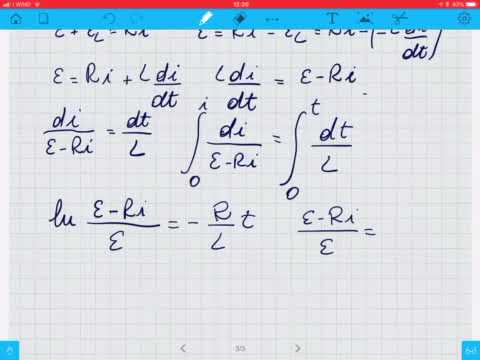 I WIND
ε + ε_L = Ri   ε = Ri - ε_L = Ri - (-L di/dt)
ε = Ri + L di/dt   L di/dt = ε - Ri
di/(ε-Ri) = dt/L   ∫₀ⁱ di/(ε-Ri) = ∫₀ᵗ dt/L
ln (ε-Ri)/ε = - R/L t   (ε-Ri)/ε =
3/3